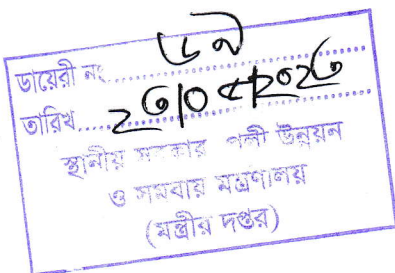 ডায়েরী নং..........
তারিখ..........
স্থানীয় সরকার পল্লী উন্নয়ন
ও সমবায় মন্ত্রণালয়
(মন্ত্রীর দপ্তর)